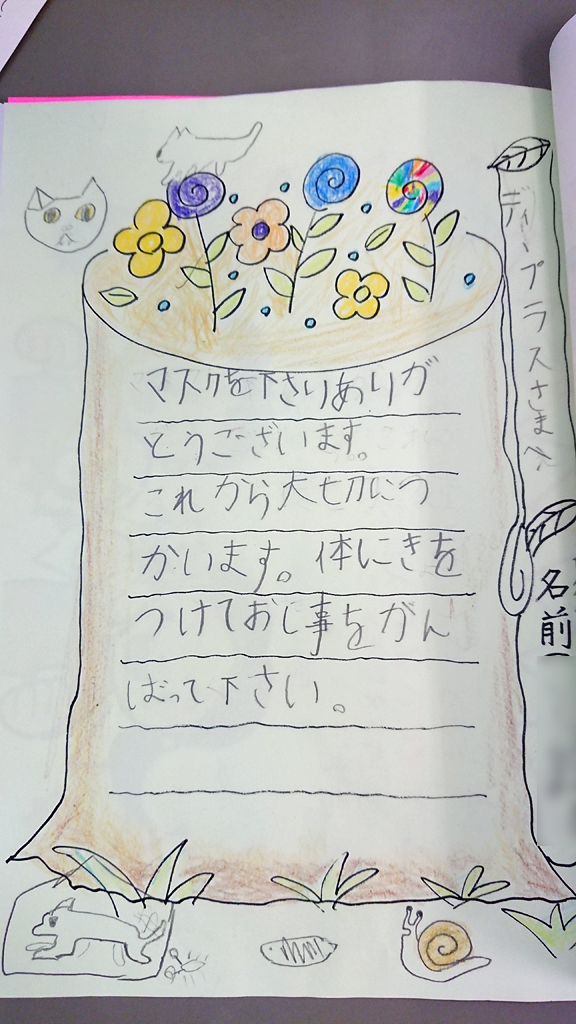 ディープラスさまへ
マスクを下さりありが
とうございます。
これから大切につ
かいます。体にきを
つけておじ事をがん
ばって下さい。
名前